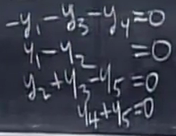 -y₁-y₃-y₄=0
y₁-y₂ =0
y₂+y₃-y₅=0
y₄+y₅=0